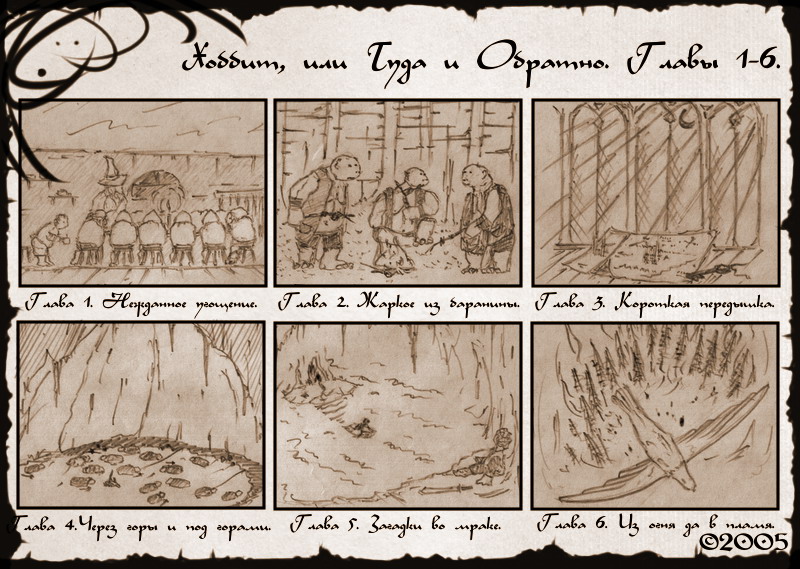 Хоббит, или Туда и Обратно. Главы 1-6.
Глава 1. Нежданное угощение.
Глава 2. Жаркое из баранины.
Глава 3. Короткая передышка.
Глава 4.Через горы и под горами.
Глава 5. Загадки во мраке.
Глава 6. Из огня да в пламя.
©2005